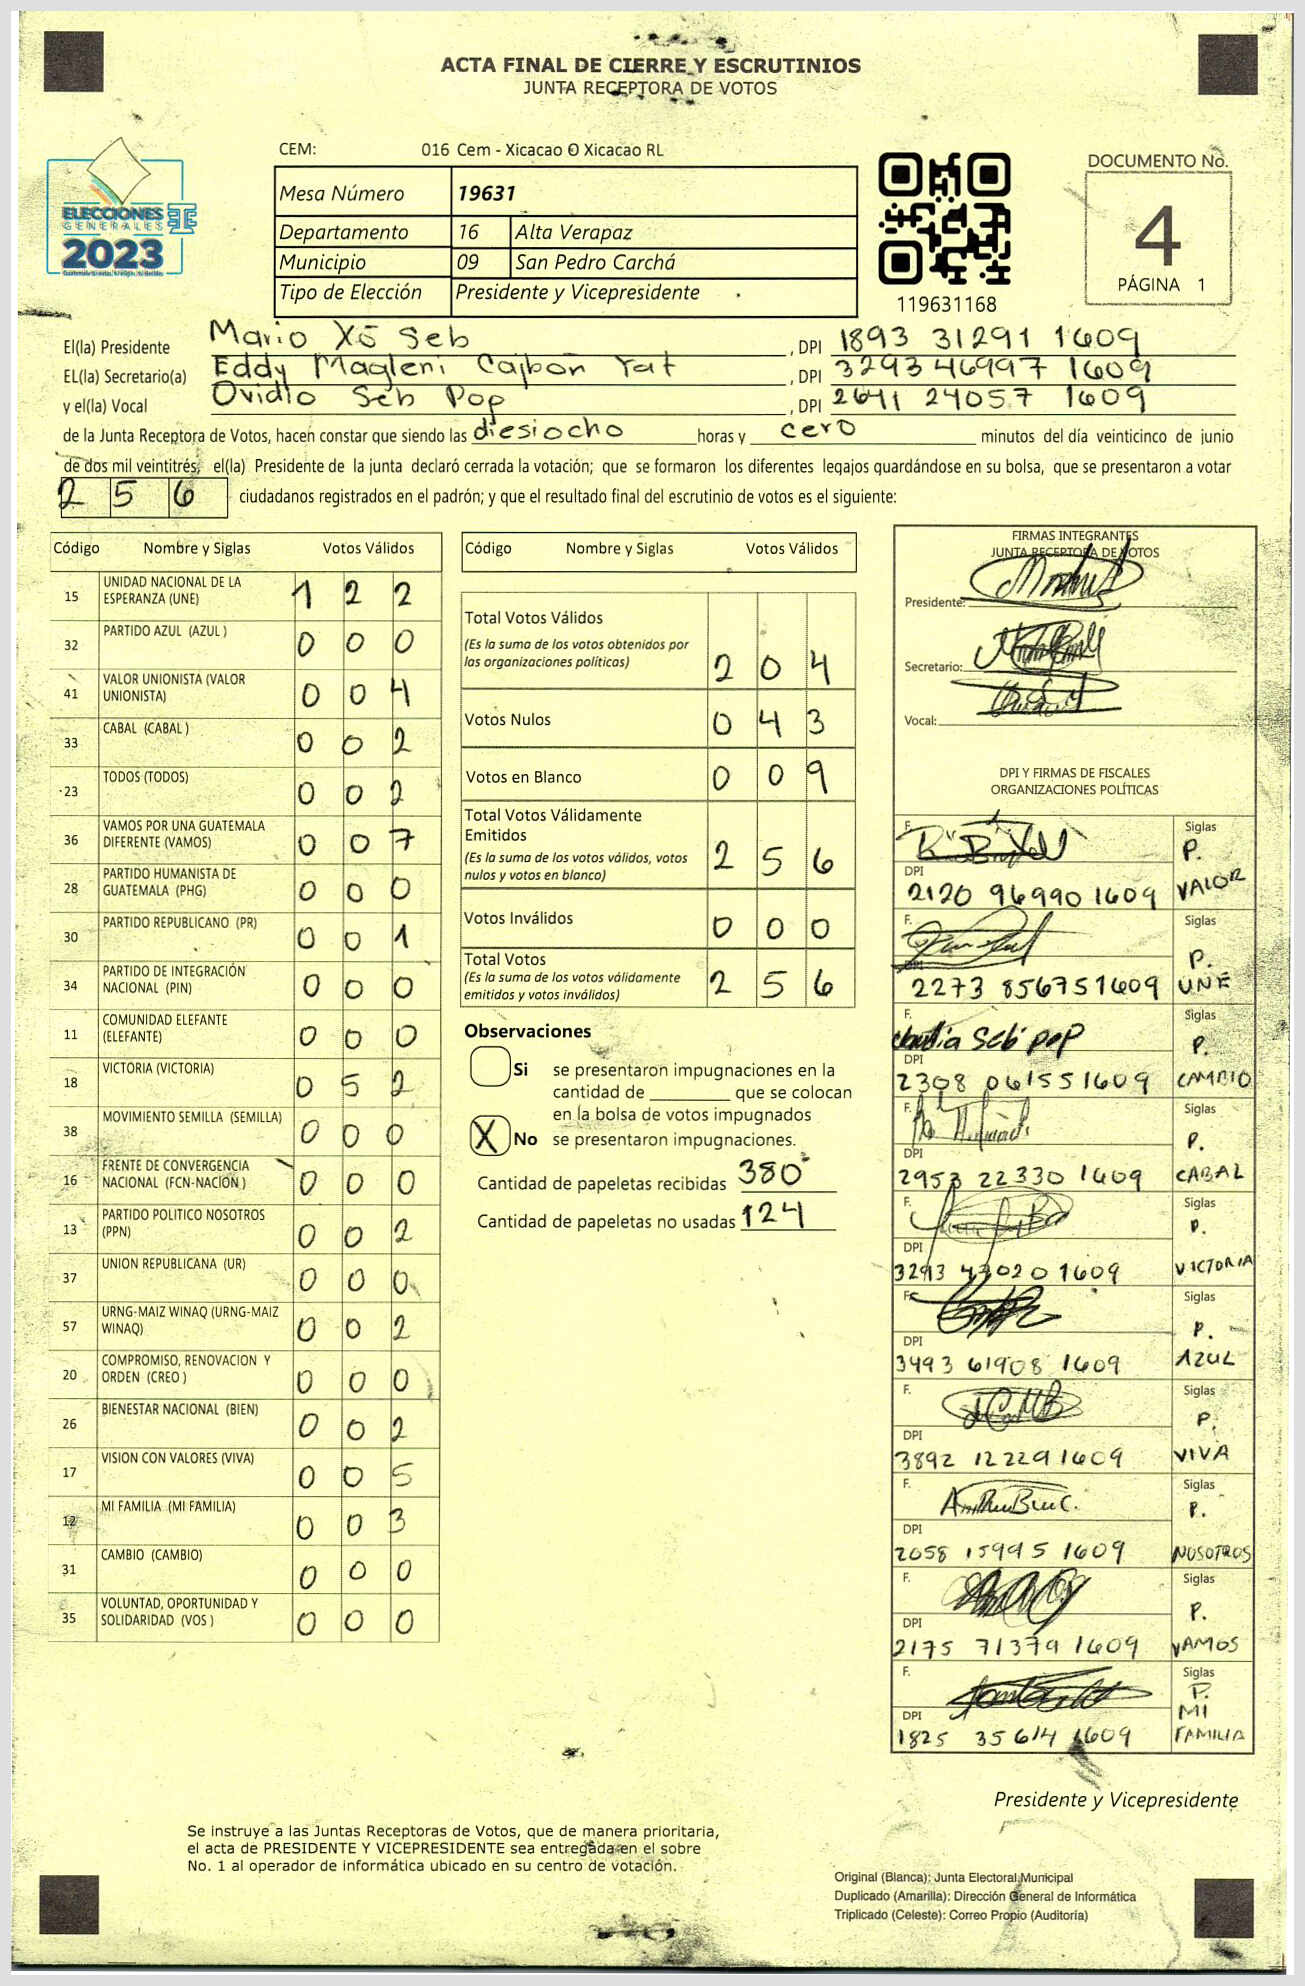 ACTA FINAL DE CIERRE Y ESCRUTINIOS
JUNTA RECEPTORA DE VOTOS
CEM: 016 Cem - Xicacao O Xicacao RL
ELECCIONES
GENERALES
2023
Mesa Número 19631
Departamento 16 Alta Verapaz
Municipio 09 San Pedro Carchá
Tipo de Elección Presidente y Vicepresidente
119631168
DOCUMENTO No.
4
PÁGINA 1
El(la) Presidente Mario Xó Seb , DPI 1893 31291 1609
EL(la) Secretario(a) Eddy Magleni Cajbon Yat , DPI 3293 46997 1609
y el(la) Vocal Ovidio Seb Pop , DPI 2641 24057 1609
de la Junta Receptora de Votos, hacen constar que siendo las diesiocho horas y cero minutos del día veinticinco de junio
de dos mil veintitrés, el(la) Presidente de la junta declaró cerrada la votación; que se formaron los diferentes legajos guardándose en su bolsa, que se presentaron a votar
256 ciudadanos registrados en el padrón; y que el resultado final del escrutinio de votos es el siguiente:
Código Nombre y Siglas Votos Válidos
15 UNIDAD NACIONAL DE LA ESPERANZA (UNE) 1 2 2
32 PARTIDO AZUL (AZUL ) 0 0 0
41 VALOR UNIONISTA (VALOR UNIONISTA) 0 0 4
33 CABAL (CABAL ) 0 0 2
23 TODOS (TODOS) 0 0 2
36 VAMOS POR UNA GUATEMALA DIFERENTE (VAMOS) 0 0 7
28 PARTIDO HUMANISTA DE GUATEMALA (PHG) 0 0 0
30 PARTIDO REPUBLICANO (PR) 0 0 1
34 PARTIDO DE INTEGRACIÓN NACIONAL (PIN) 0 0 0
11 COMUNIDAD ELEFANTE (ELEFANTE) 0 0 0
18 VICTORIA (VICTORIA) 0 5 2
38 MOVIMIENTO SEMILLA (SEMILLA) 0 0 0
16 FRENTE DE CONVERGENCIA NACIONAL (FCN-NACION ) 0 0 0
13 PARTIDO POLITICO NOSOTROS (PPN) 0 0 2
37 UNION REPUBLICANA (UR) 0 0 0
57 URNG-MAIZ WINAQ (URNG-MAIZ WINAQ) 0 0 2
20 COMPROMISO, RENOVACION Y ORDEN (CREO ) 0 0 0
26 BIENESTAR NACIONAL (BIEN) 0 0 2
17 VISION CON VALORES (VIVA) 0 0 5
12 MI FAMILIA (MI FAMILIA) 0 0 3
31 CAMBIO (CAMBIO) 0 0 0
35 VOLUNTAD, OPORTUNIDAD Y SOLIDARIDAD (VOS ) 0 0 0
Código Nombre y Siglas Votos Válidos
Total Votos Válidos
(Es la suma de los votos obtenidos por
las organizaciones políticas) 2 0 4
Votos Nulos 0 4 3
Votos en Blanco 0 0 9
Total Votos Válidamente
Emitidos
(Es la suma de los votos válidos, votos
nulos y votos en blanco) 2 5 6
Votos Inválidos 0 0 0
Total Votos
(Es la suma de los votos válidamente
emitidos y votos inválidos) 2 5 6
Observaciones
Si se presentaron impugnaciones en la
cantidad de ________ que se colocan
en la bolsa de votos impugnados
X No se presentaron impugnaciones.
Cantidad de papeletas recibidas 380
Cantidad de papeletas no usadas 124
FIRMAS INTEGRANTES
JUNTA RECEPTORA DE VOTOS
Presidente:
Secretario:
Vocal:
DPI Y FIRMAS DE FISCALES
ORGANIZACIONES POLÍTICAS
F. Siglas
DPI P.
2120 96990 1609 VALOR
F. Siglas
DPI P.
2273 85675 1609 UNE
F. Claudia Seb Pop Siglas
DPI P.
2308 06155 1609 CAMBIO
F. Siglas
DPI P.
2953 22330 1609 CABAL
F. Siglas
DPI P.
3293 43020 1609 VICTORIA
F. Siglas
DPI P.
3493 61908 1609 AZUL
F. Siglas
DPI P.
3892 12229 1609 VIVA
F. Siglas
DPI P.
2058 15995 1609 NOSOTROS
F. Siglas
DPI P.
2175 71379 1609 VAMOS
F. Siglas
P.
DPI MI
1825 35614 1609 FAMILIA
Presidente y Vicepresidente
Se instruye a las Juntas Receptoras de Votos, que de manera prioritaria,
el acta de PRESIDENTE Y VICEPRESIDENTE sea entregada en el sobre
No. 1 al operador de informática ubicado en su centro de votación.
Original (Blanca): Junta Electoral Municipal
Duplicado (Amarilla): Dirección General de Informática
Triplicado (Celeste): Correo Propio (Auditoría)